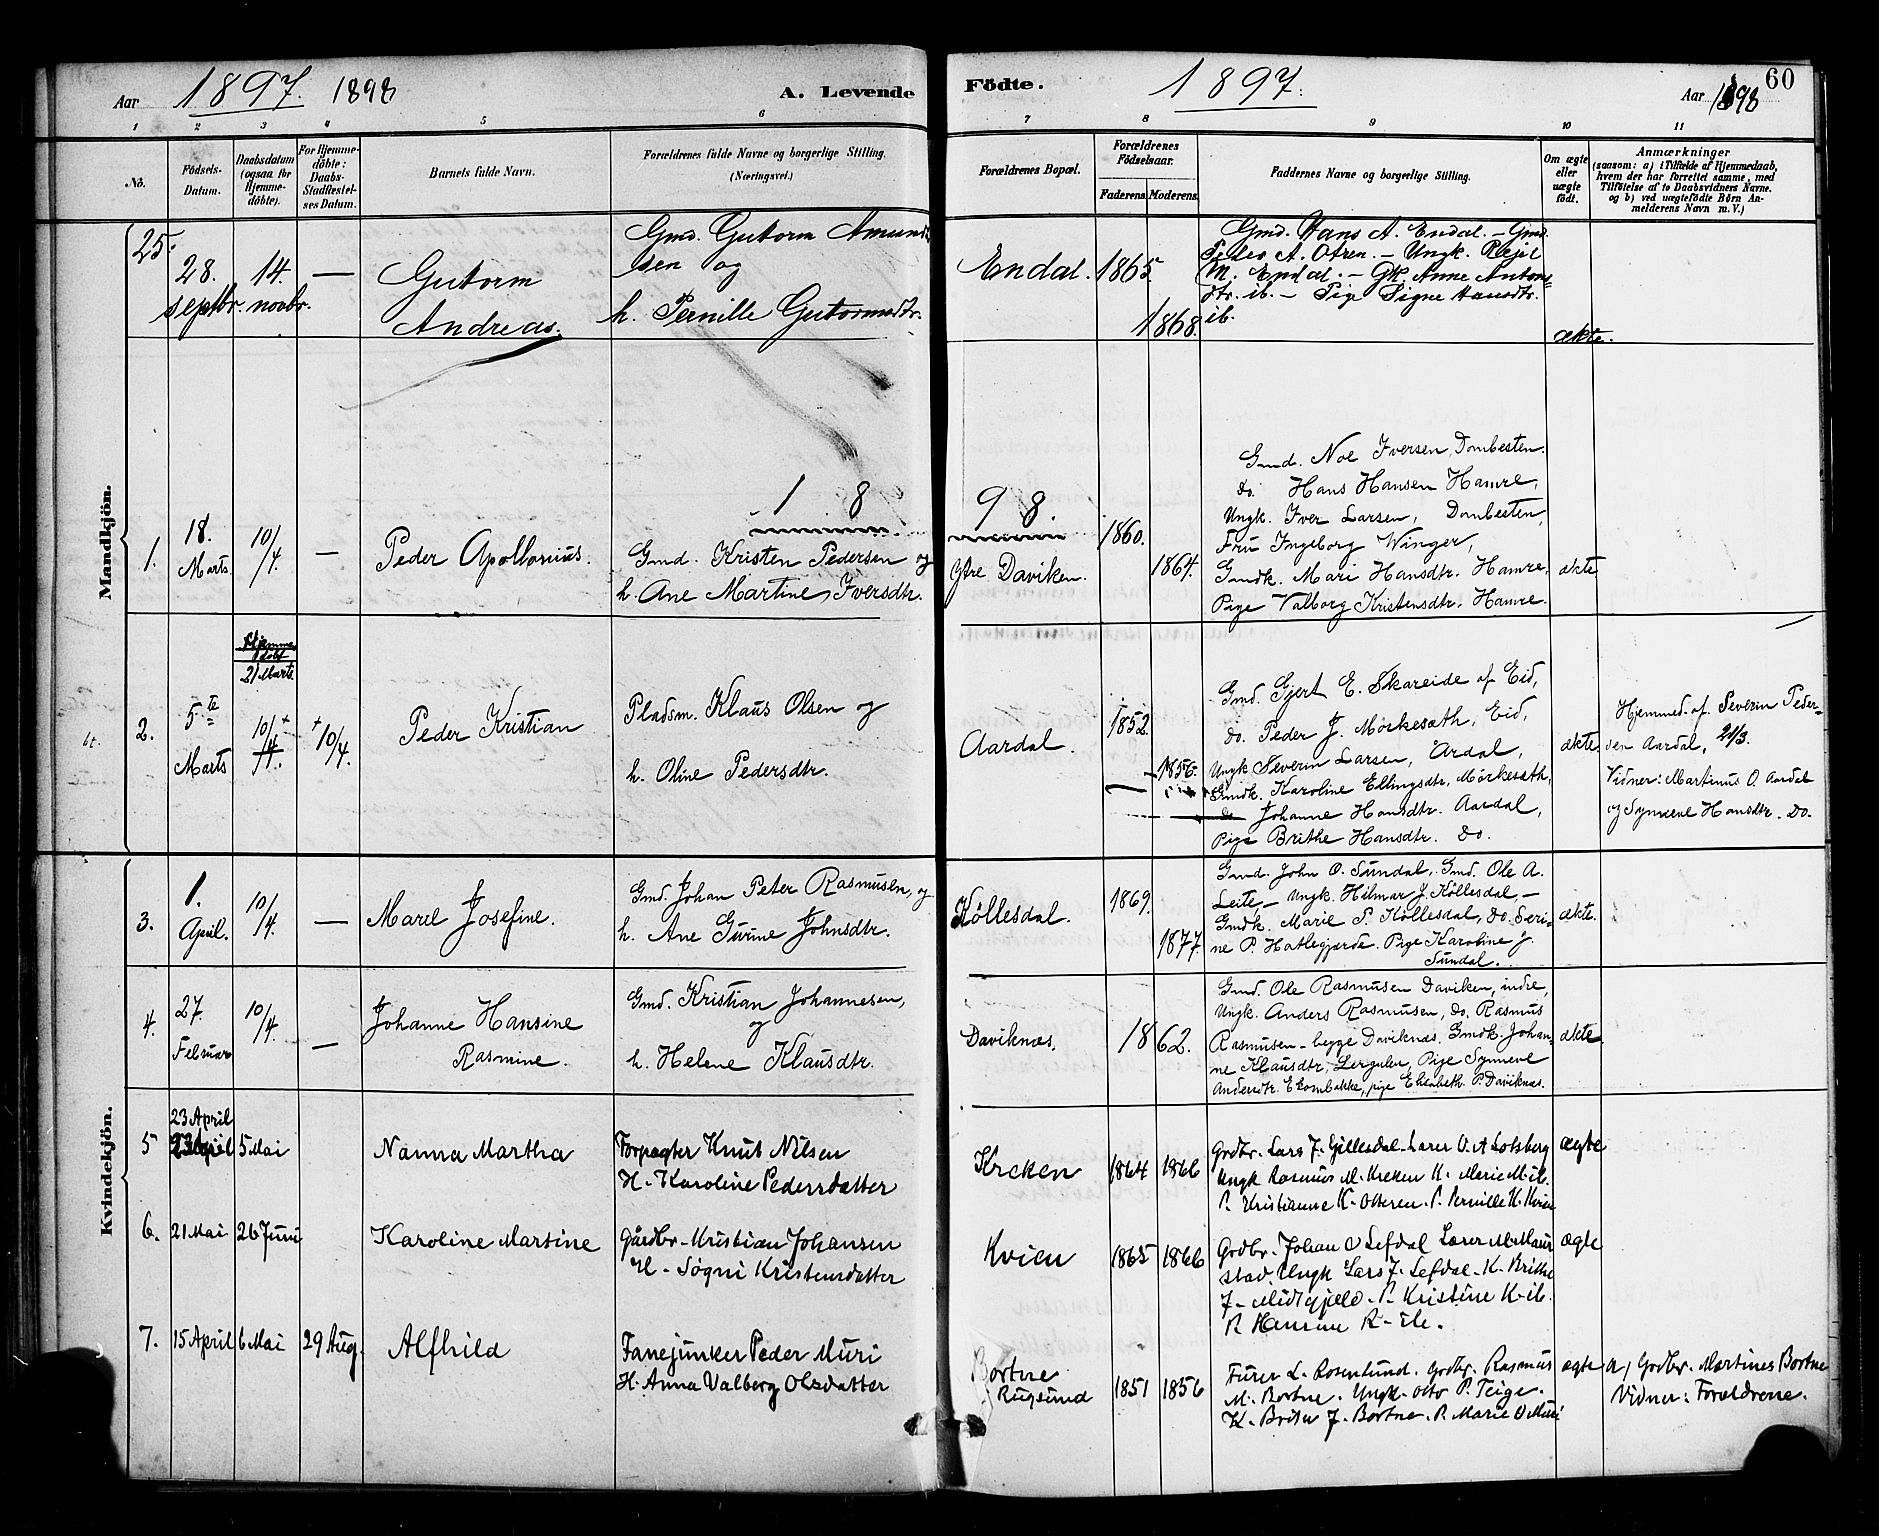 Aar 1897. 1898 A. Levende Födte. 1897. Aar 1898 60
1 2 3 4 5 6 7 8 9 10 11
No.
Födsels-Datum.
Daabsdatum (ogsaa for Hjemme-döbte).
For Hjemme-döbte: Daabs-Stadfæstel-ses Datum.
Barnets fulde Navn.
Forældrenes fulde Navne og borgerlige Stilling.
(Næringsvei.)
Forældrenes Bopæl.
Forældrenes Födselsaar.
Faderens. Moderens.
Faddernes Navne og borgerlige Stilling.
Om ægte eller uægte födt.
Anmærkninger
(saasom: a) i Tilfælde af Hjemmedaab,
hvem der har forrettet samme, med
Tilföielse af to Daabsvidners Navne.
og b) ved uægtefödte Börn An-
melderens Navn m. V.)
Mandkjön.
25.
28. septbr.
14. novbr.
—
Gutorm
Andreas.
Gmd. Gutorm Amund-
sen og
h. Pernille Gutormsdtr.
Endal.
1865.
1868.
Gmd. Hans A. Endal. — Gmd.
Peder A. Otren. — Ungk.
M. Endal. — Gk. Anne Antons-
dtr. ib. — Pige Signe Hansdtr.
ib.
ækte.
18 98.
1.
18. Marts
10/4.
—
Peder Apollonius.
Gmd. Kristen Pedersen og
h. Ane Martine Iversdtr.
Ytre Daviken.
1860.
1864.
Gmd. Noe Iversen, Dombesten.
Do. Hans Hansen Hamre,
Ungk. Iver Larsen, Dombesten,
Fru Ingeborg Winger,
Gmdk. Mari Hansdtr. Hamre,
Pige Valborg Kristensdtr. Hamre.
ækte
2.
5te Marts
Hjemme
døbt
21 Marts
10/4 +
+ 10/4.
Peder Kristian
Pladsm. Klaus Olsen og
h. Oline Pedersdtr.
Aardal.
1852.
1856.
Gmd. Gjert E. Skareide af Eid,
Do. Peder J. Mørkesæth, Eid,
Ungk Severin Larsen, Ardal,
Gmdk. Karoline Ellingsdtr. Mørkesæth,
do Johanne Hansdtr. Aardal,
Pige Brithe Hansdtr. Do.
ækte
Hjemmed. af Severin Peder-
sen Aardal, 21/3.
Vidner: Martinus O. Aardal
og Synneve Hansdtr. Do.
Kvindekjön.
3.
1. April.
10/4.
—
Maret Josefine.
Gmd. Johan Peter Rasmusen, og
h. Ane Gurine Johnsdtr.
Køllesdal.
1869.
1877.
Gmd. John O. Sundal, Gmd. Ole A.
Leite — Ungk. Hilmar J. Køllesdal, —
Gmdk. Marie P. Køllesdal, Do. Seri-
ne P. Hatlegjærde. Pige Karoline J.
Sundal.
ækte.
4.
27. Februar
10/4.
—
Johanne Hansine
Rasmine.
Gmd. Kristian Johannesen,
og
h. Helene Klausdtr.
Daviknæs.
1862.
Gmd. Ole Rasmusen Daviken, indre,
Ungk. Anders Rasmusen, Do. Rasmus
Rasmusen — begge Daviknæs. Gmdk. Johan-
ne Klausdtr, Lergulen, Pige Synneve
Andersdtr. pige Elisabeth P. Daviknæs.
ækte
5
23 April
23 April
5 Mai
Nanna Martha
Forpagter Knut Nilsen
H. Karoline Pedersdatter
Kreken
1864 1866
Grdbr. Lars J. Gjillesdal - Lærer O. A Lotsberg
Ungk Rasmus M. Kreken K. Marie M. ib.
P. Kristianne K. Otteren. P. Pernille K. Kvien
ægte
6. 21 Mai 26 Juni
Karoline Martine
Gårdbr. Kristian Johansen
H. Søgni Kristensdatter
Kvien
1865 1866
Grdbr. Johan O Lefdal Lærer M. Maur-
stad. Ungk Lars J. Lefdal. K. Brithe
J. Midtgjæld. P. Kristine K. ib.
ægte
7. 15 April 6 Mai 29 Aug.
Alfhild
Fanejunker Peder Muri
H. Anna Valberg Olsdatter
Bortne
Rugsund
1851 1856
Furer L. Rosenlund. Grdbr. Rasmus
M. Bortne. Ungk. Otto P. Teige.
K. Brita J. Bortne. P. Marie O Muri
ægte
a) Grdbr. Martines Bortne
Vidner: Forældrene.